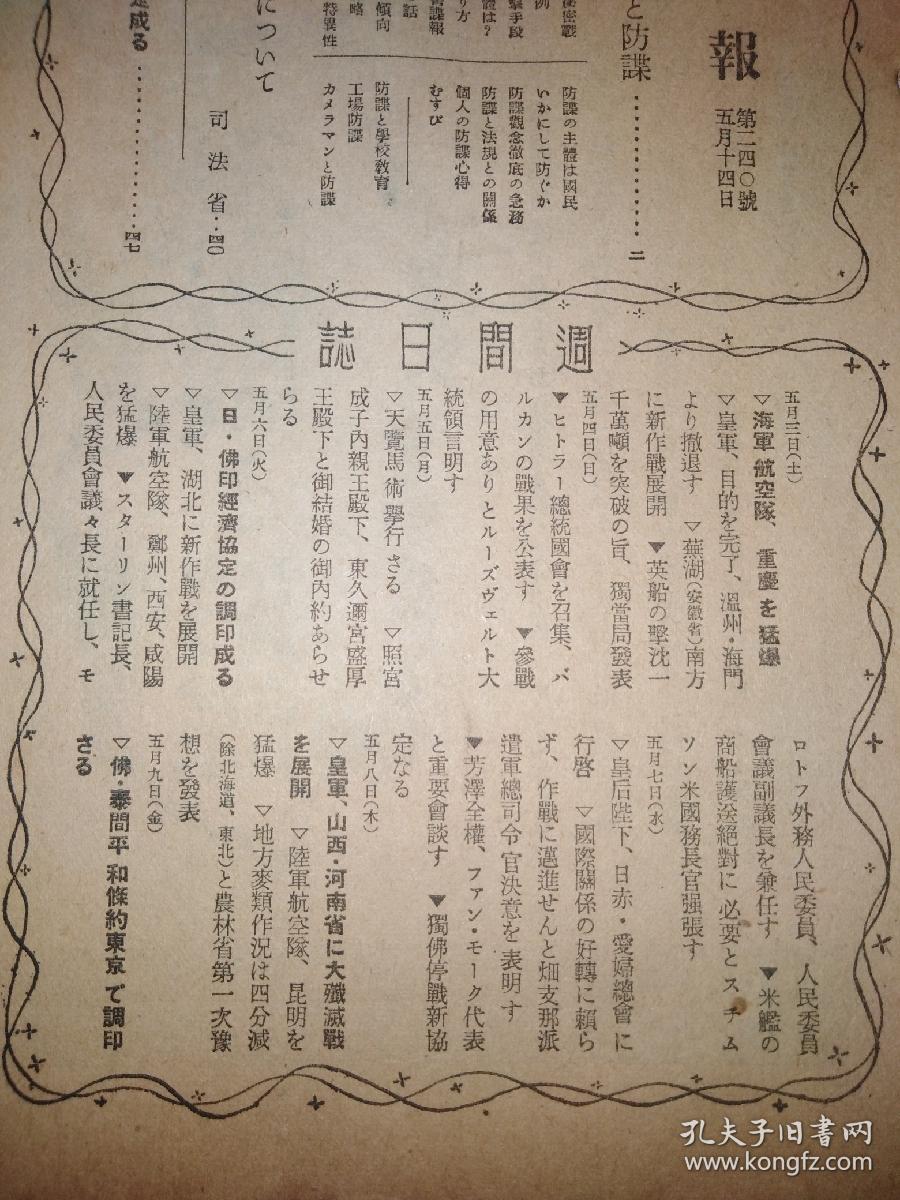 報
第二四〇號
五月十四日
と防諜……………二
防諜の主體は國民
いかにして防ぐか
防諜觀念徹底の急務
防諜と法規との關係
個人の防諜心得
むすび
防諜と學校教育
工場防諜
カメラマンと防諜
祕密戰
例
擊手段
體は?
り方
話
傾向
略
特異性
について
司法省‥四〇
成る……………四七
週間日誌
五月三日(土)
▽海軍航空隊、重慶を猛爆
▽皇軍、目的を完了、溫州・海門
より撤退す ▽蕪湖(安徽省)南方
に新作戰展開 ▼英船の擊沈一
千萬噸を突破の旨、獨當局發表
五月四日(日)
▼ヒトラー總統國會を召集、バ
ルカンの戰果を公表す ▼參戰
の用意ありとルーズヴェルト大
統領言明す
五月五日(月)
▽天覽馬術擧行さる ▽照宮
成子內親王殿下、東久邇宮盛厚
王殿下と御結婚の御內約あらせ
らる
五月六日(火)
▽日・佛印經濟協定の調印成る
▽皇軍、湖北に新作戰を展開
▽陸軍航空隊、鄭州、西安、咸陽
を猛爆 ▼スターリン書記長、
人民委員會議々長に就任し、モ
ロトフ外務人民委員、人民委員
會議副議長を兼任す ▼米艦の
商船護送絕對に必要とスチム
ソン米國務長官强張す
五月七日(水)
▽皇后陛下、日赤・愛婦總會に
行啓 ▽國際關係の好轉に賴ら
ず、作戰に邁進せんと畑支那派
遣軍總司令官決意を表明す
▼芳澤全權、ファン・モーク代表
と重要會談す ▼獨佛停戰新協
定なる
五月八日(木)
▽皇軍、山西・河南省に大殲滅戰
を展開 ▽陸軍航空隊、昆明を
猛爆 ▽地方麥類作況は四分減
(除北海道、東北)と農林省第一次豫
想を發表
五月九日(金)
▽佛・泰間平和條約東京で調印
さる
孔夫子旧书网
www.kongfz.com